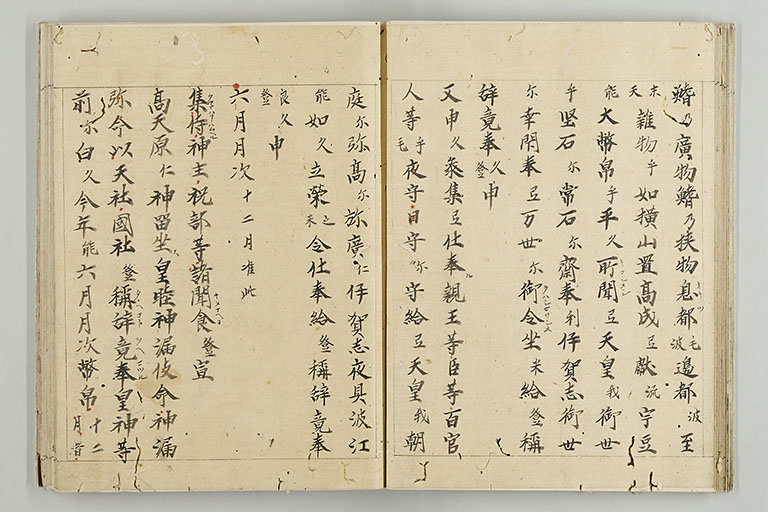 鰭乃廣物鰭乃狹物息都毛波邊都波至
末天雜物乎如横山置髙成弖献流宇豆
能大幣帛乎平久所聞弖天皇我御世
乎堅石尓常石尓齋奉利伊賀志御世
尓幸閇奉弖万世尓御令坐米給登稱
辞竟奉久登申
又申久参集弖仕奉親王等臣等百官
人等乎毛夜守日守尓守給弖天皇我朝
庭尓弥髙尓弥廣仁伊賀志夜具波江
能如久立榮之米令仕奉給登稱辞竟奉
良久登申
六月月次十二月准此
集侍神主祝部等諸聞食登宣
髙天原仁神留坐皇睦神漏伎命神漏
弥命以天社國社登稱辞竟奉皇神等
前尓白久今年能六月月次幣帛十二月者